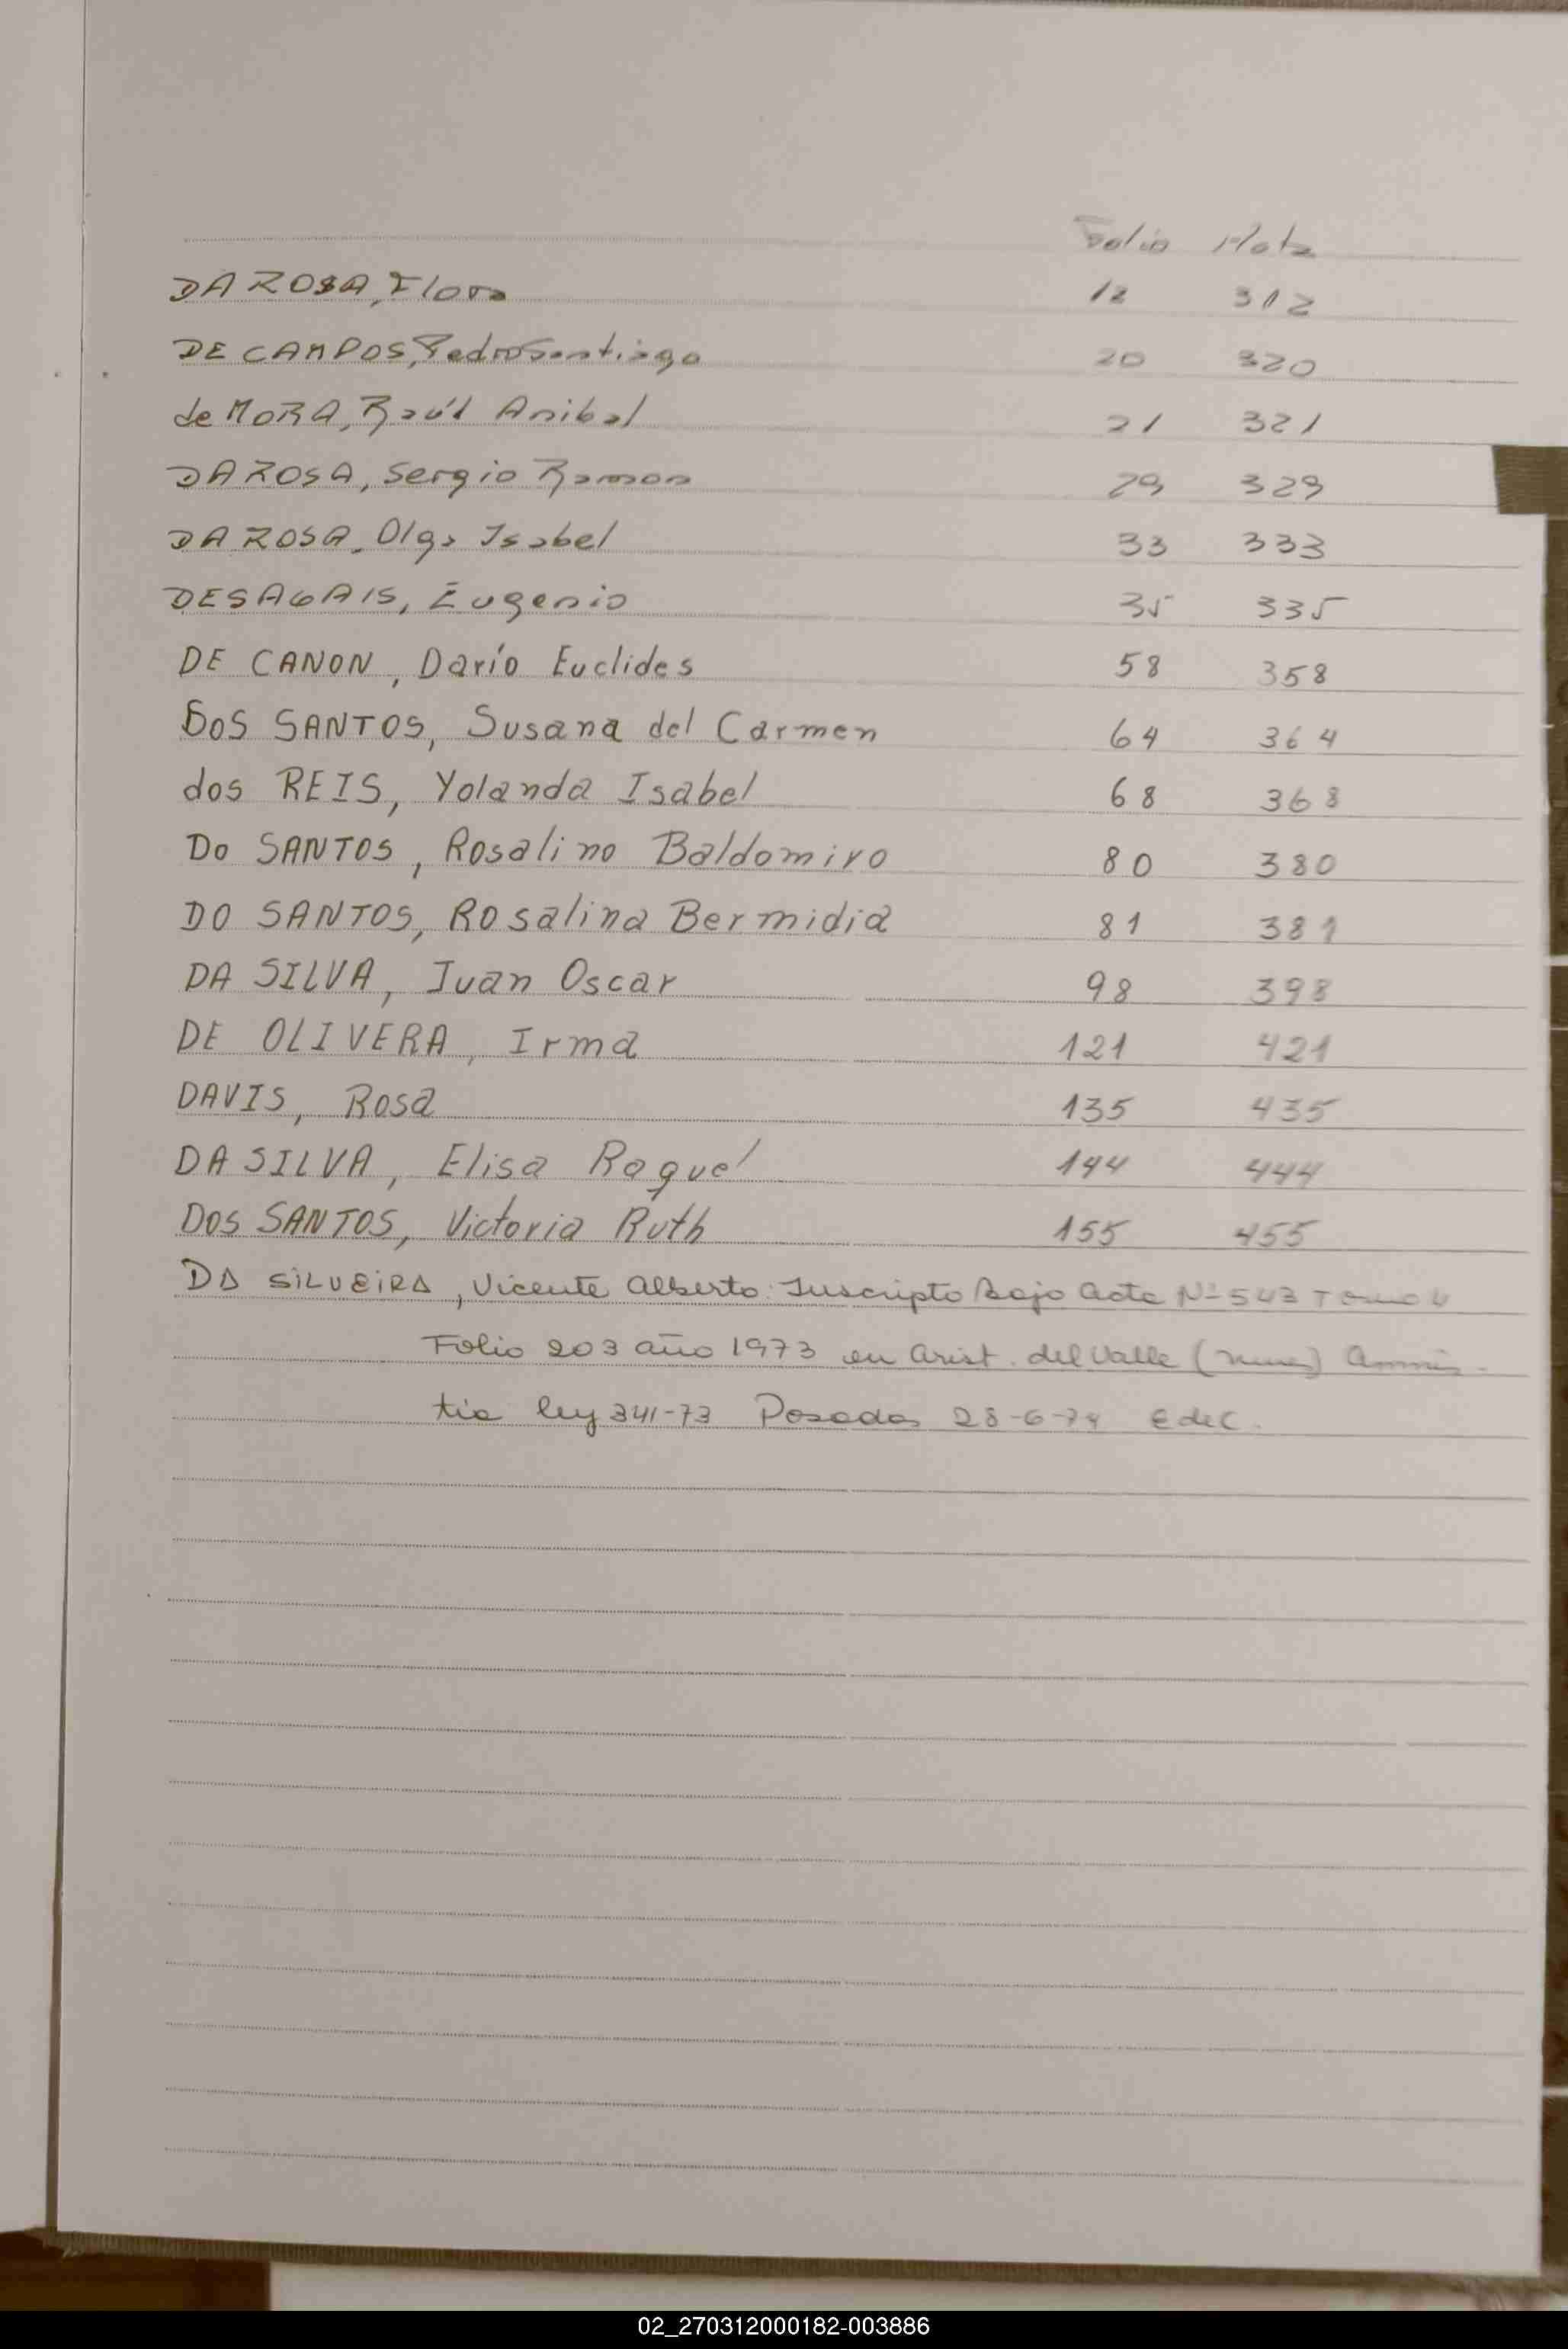 Folio Acta
DA ROSA, Flora 12 312
DE CAMPOS, Pedro Santiago 20 320
de MORA, Raúl Anibal 21 321
DA ROSA, Sergio Ramon 29 329
DA ROSA, Olga Isabel 33 333
DESAGAIS, Eugenio 35 335
DE CANON, Darío Euclides 58 358
DOS SANTOS, Susana del Carmen 64 364
dos REIS, Yolanda Isabel 68 368
Do SANTOS, Rosalino Baldomiro 80 380
DO SANTOS, Rosalina Bermidia 81 381
DA SILVA, Juan Oscar 98 398
DE OLIVERA, Irma 121 421
DAVIS, Rosa 135 435
DA SILVA, Elisa Raquel 144 444
DOS SANTOS, Victoria Ruth 155 455
DA SILVEIRA, Vicente Alberto: Inscripto Bajo Acta Nº 543 Tomo
Folio 203 año 1973 en Arist. del Valle Amnis-
tia ley 341-73 Posadas 28-6-74
02_270312000182-003886